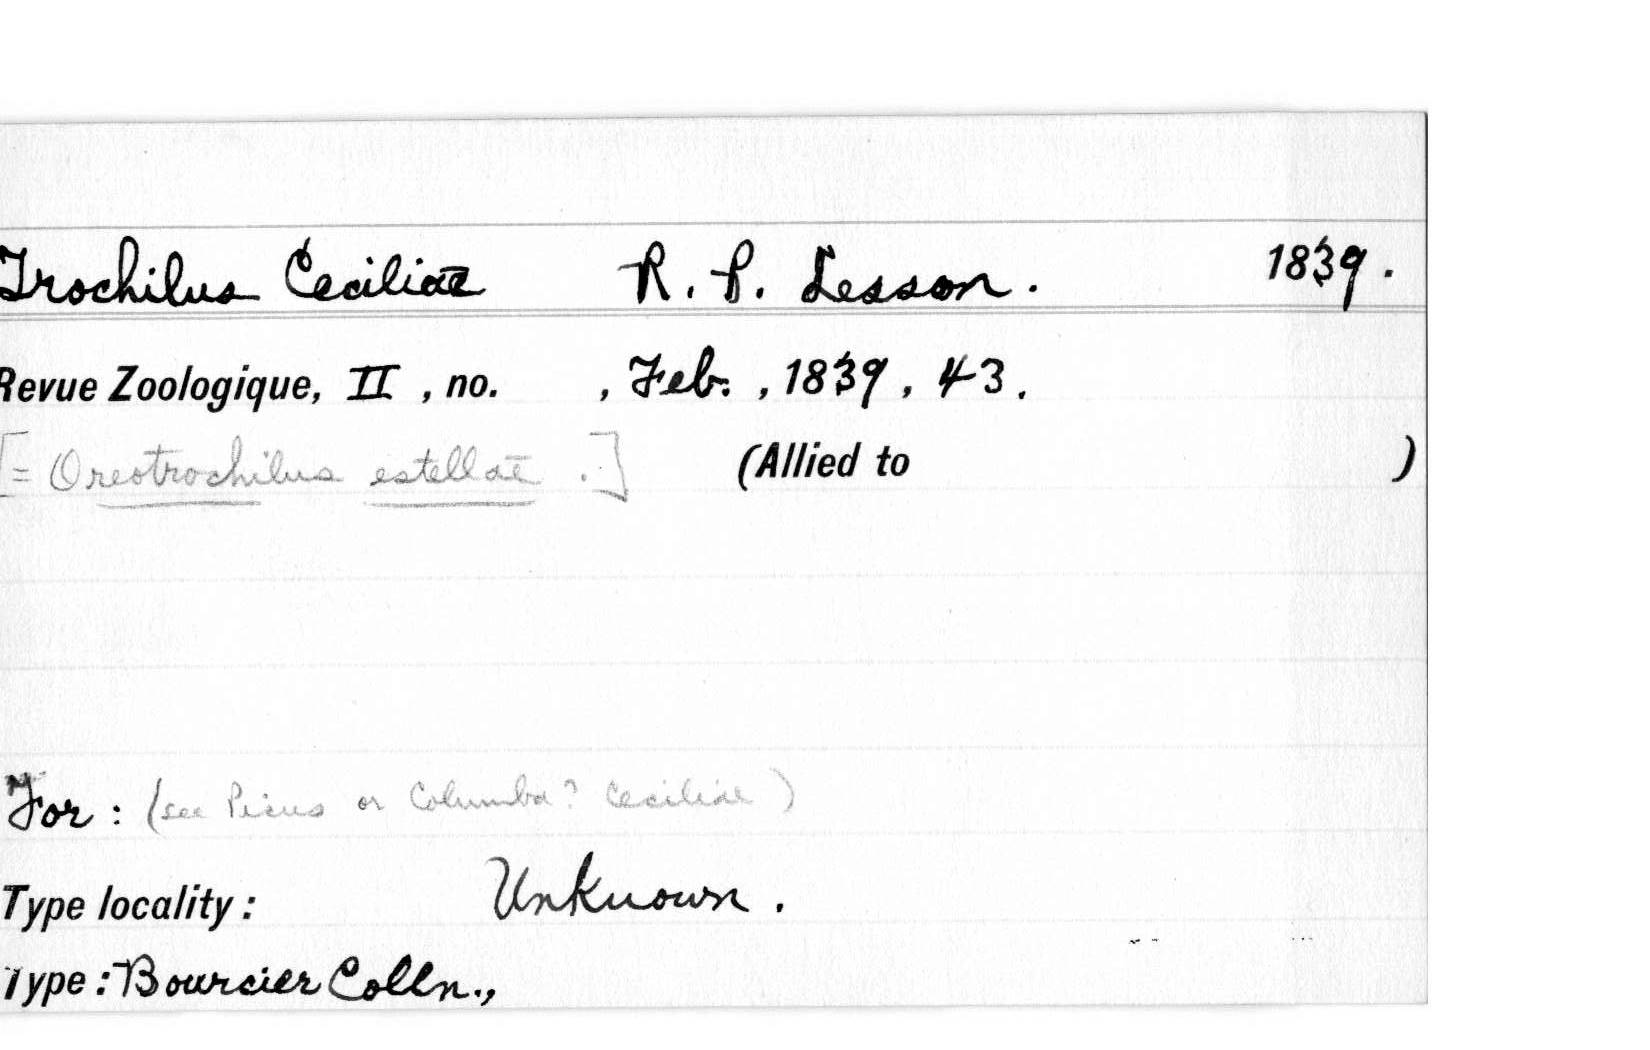 Trochilus Ceciliae R. P. Lesson. 1839.
Revue Zoologique, II, no. , Feb., 1839, 43.
[= Oreotrochilus estellae.] (Allied to )
For: (see Picus or Columba? Ceciliae)
Type locality: Unknown.
Type: Bourcier Colln.,